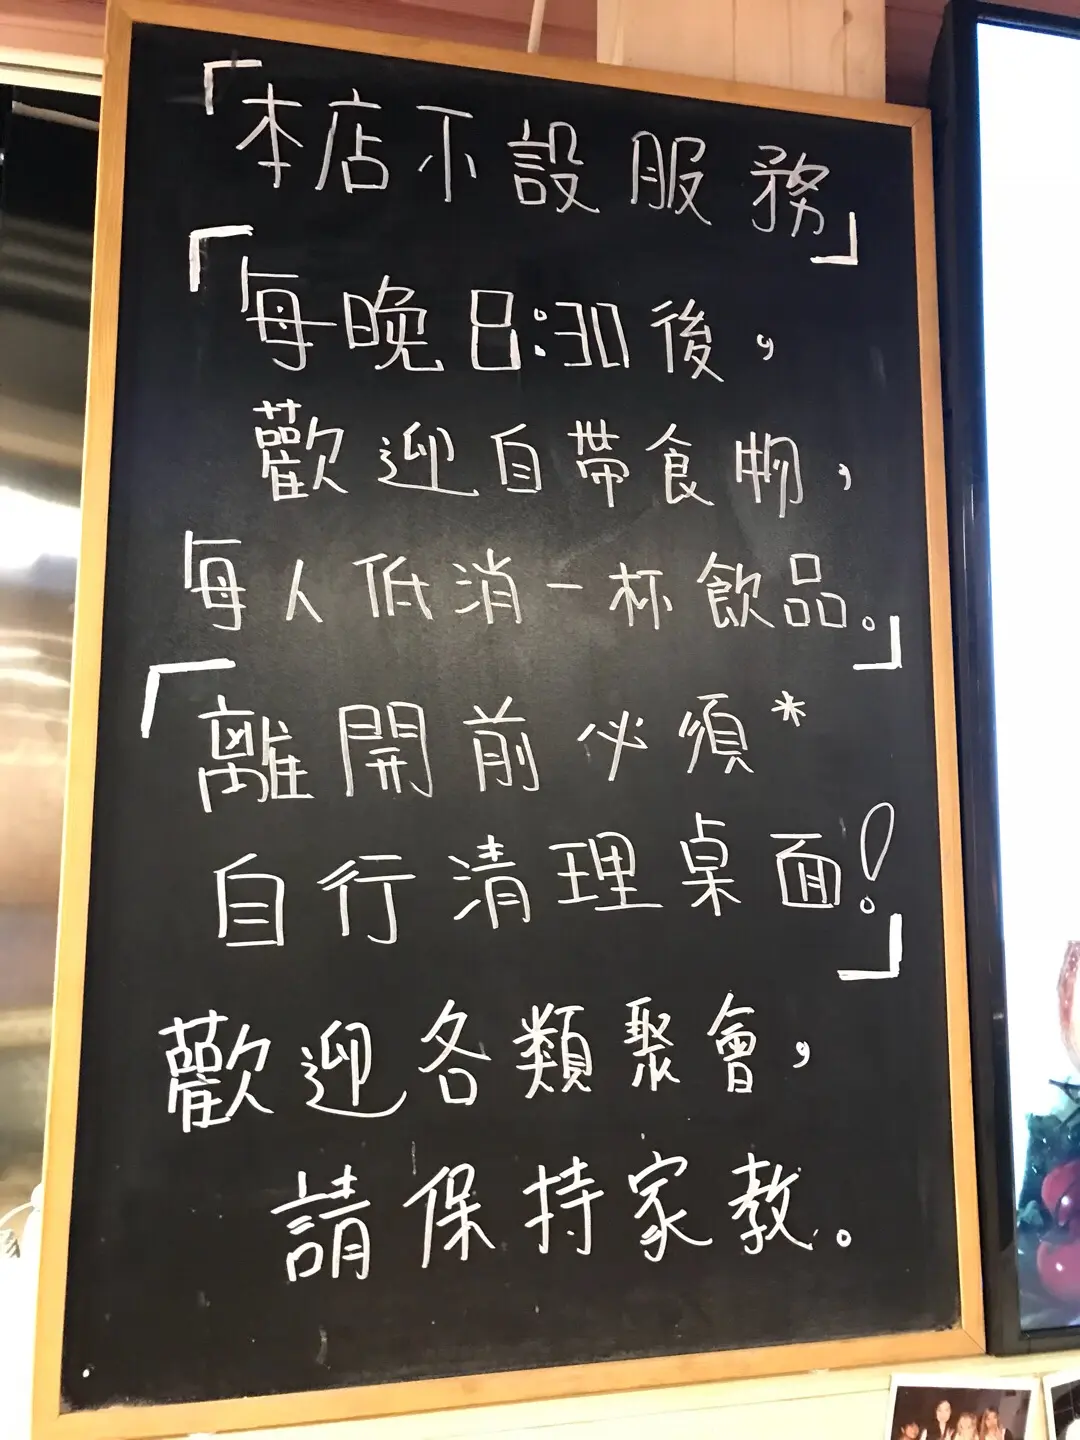 「本店不設服務」
「每晚8:30後，
歡迎自帶食物，
每人低消一杯飲品。」
「離開前必須*
自行清理桌面!」
歡迎各類聚會，
請保持家教。